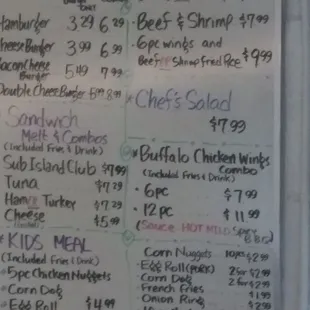 Hamburger 3.29 6.29
Cheese Burger 3.99 6.99
Bacon Cheese
Burger 5.49 7.99
Double Cheese Burger 8.99
Sandwich
Melt & Combos
(Included Fries & Drink)
Sub Island Club $7.99
Tuna $7.29
Ham or Turkey $7.29
Cheese $5.99
KIDS MEAL
(Included Fries & Drink)
5pc Chicken Nuggets
Corn Dog
Egg Roll $4.99
Beef & Shrimp $7.99
6pc wings and
Beef or Shrimp Fried Rice $9.99
Chef's Salad
$7.99
Buffalo Chicken Wings
Combo
(Included Fries & Drink)
6pc $7.99
12pc $11.99
(Sauce HOT MILD Spicy
BBQ)
Corn Nuggets 10pcs $2.99
Egg Roll (PORK) 2 for $2.99
Corn Dog 2 for $2.99
French Fries $1.99
Onion Ring $2.99